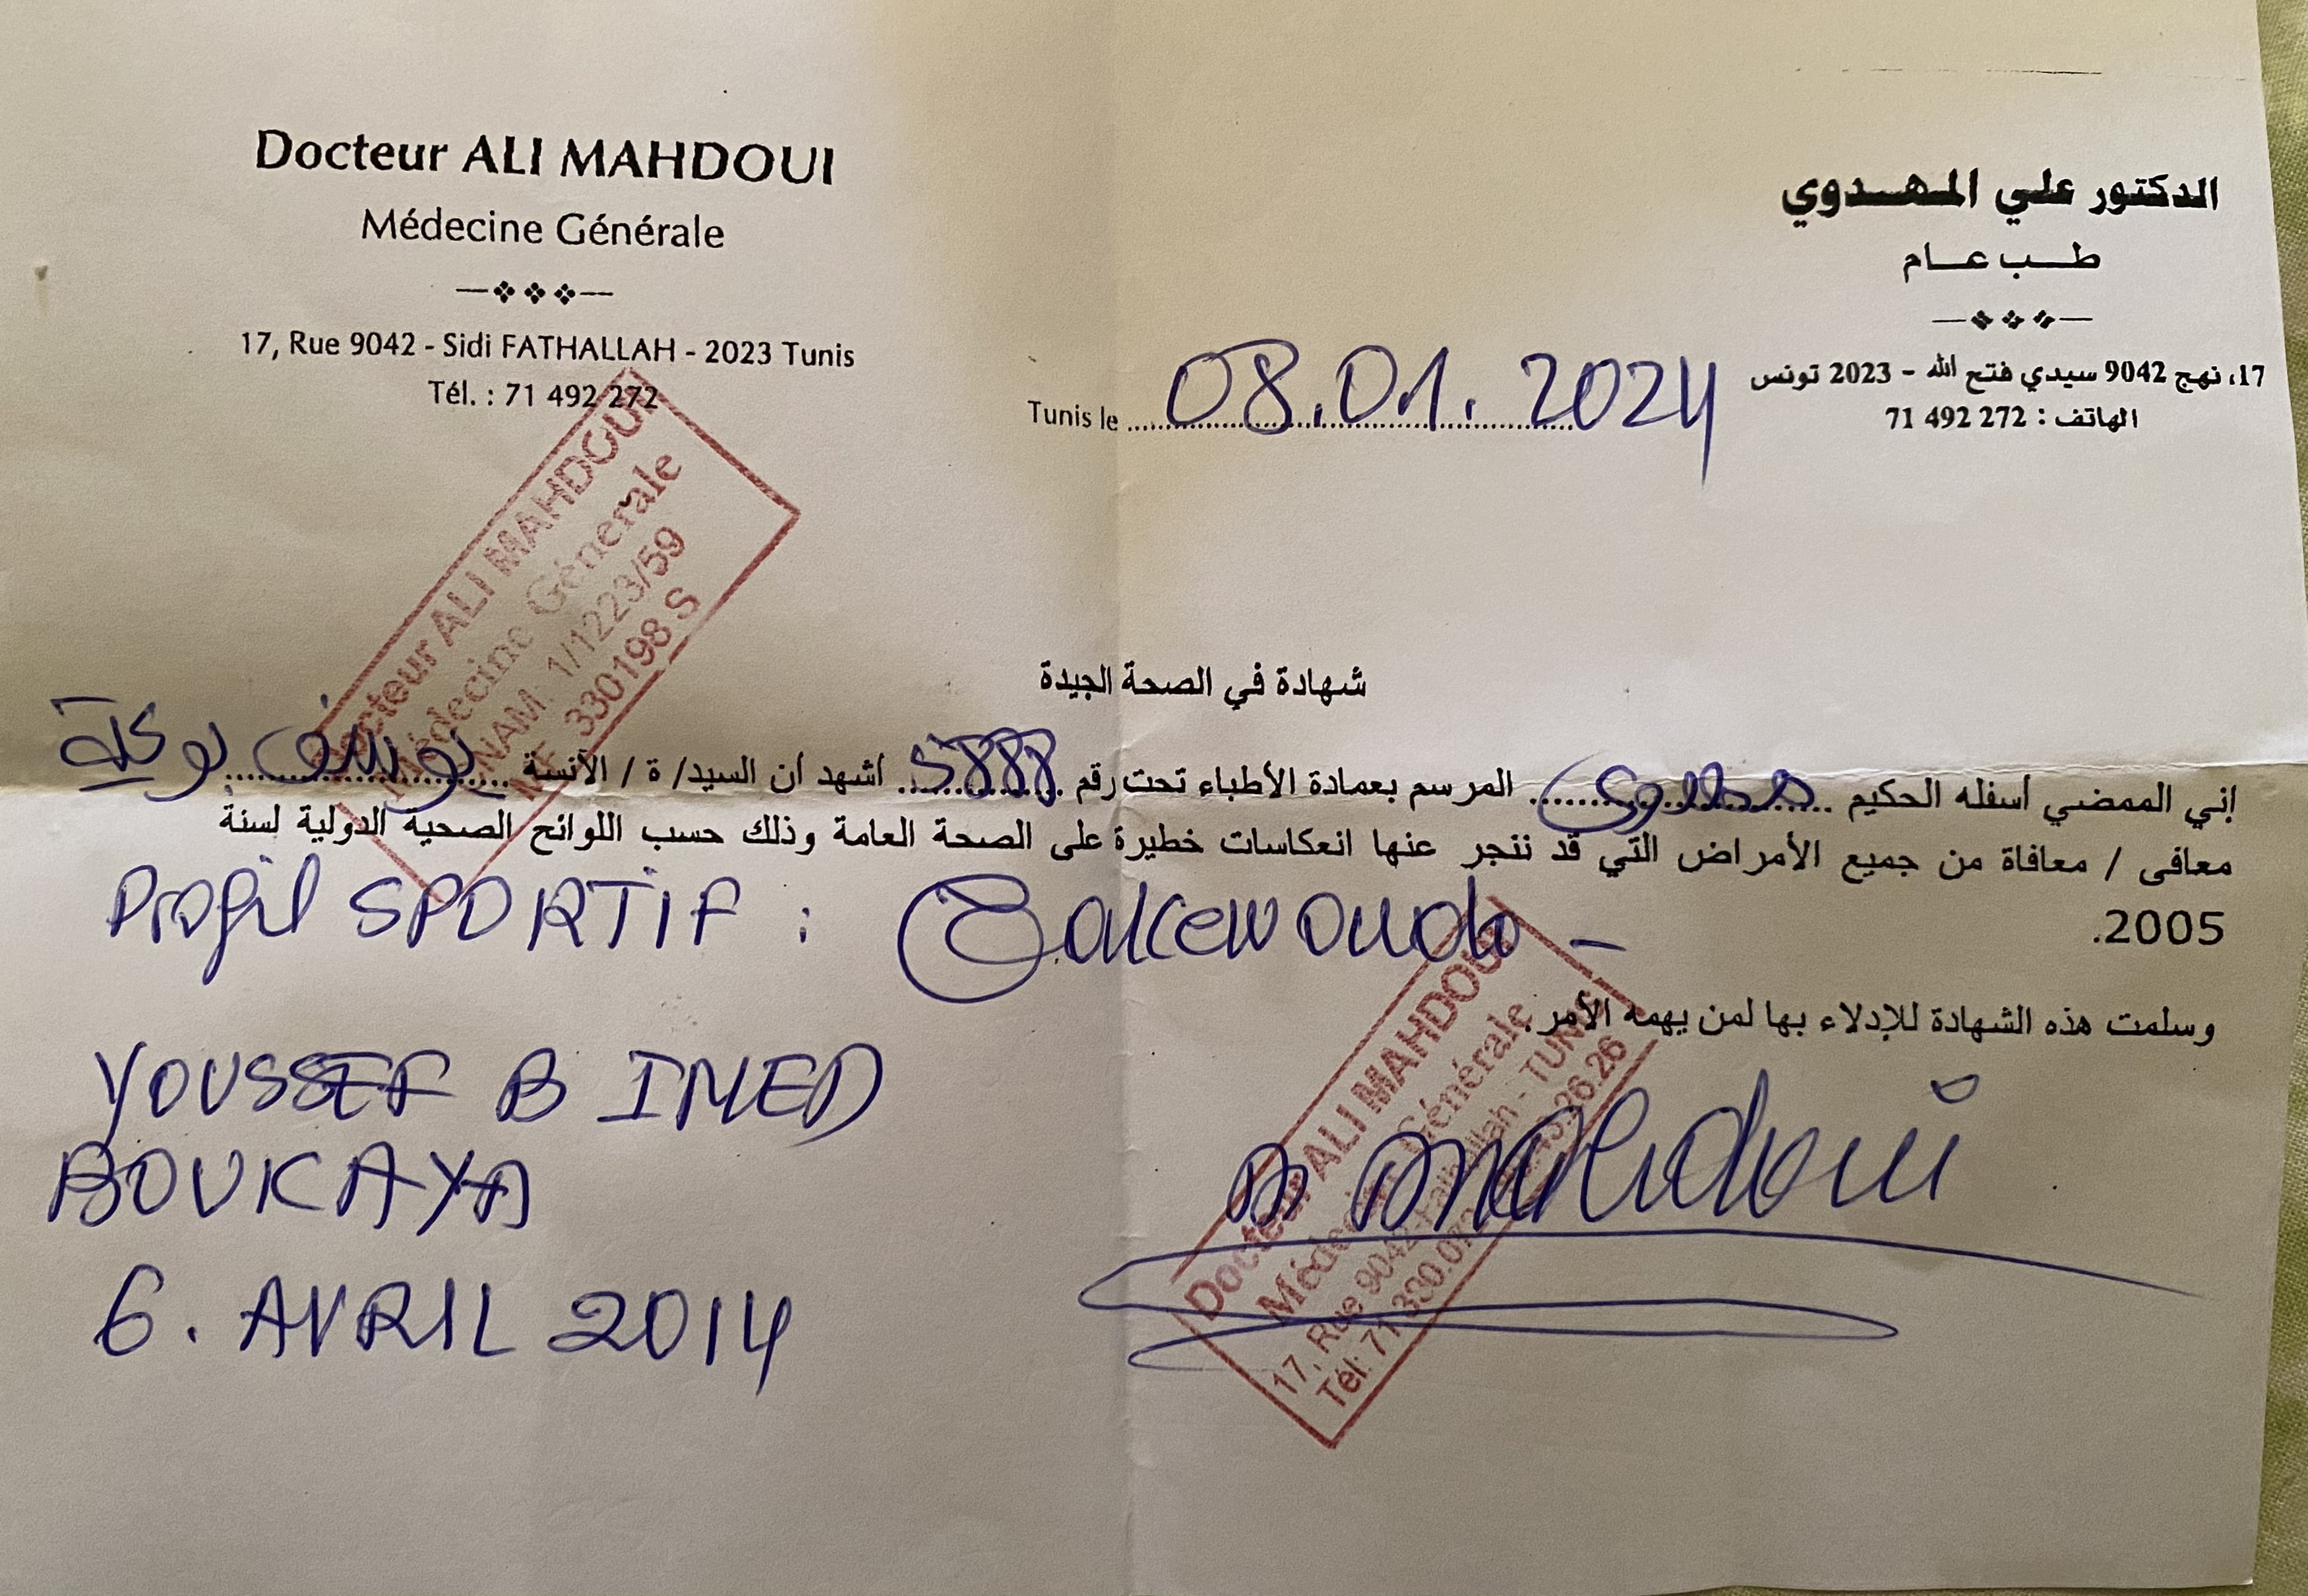 Docteur ALI MAHDOUI
Médecine Générale
17, Rue 9042 - Sidi FATHALLAH - 2023 Tunis
Tél. : 71 492 272
الدكتور علي المهدوي
طب عام
17، نهج 9042 سيدي فتح الله - 2023 تونس
الهاتف : 272 492 71
Tunis le 08.01.2024
Docteur ALI MAHDOUI
Médecine Générale
1/1223/59
330198 S
شهادة في الصحة الجيدة
إني الممضي أسفله الحكيم مهدوي المرسم بعمادة الأطباء تحت رقم 5888 أشهد أن السيد/ ة / الآنسة يوسف بوكاية
معافى / معافاة من جميع الأمراض التي قد تنجر عنها انعكاسات خطيرة على الصحة العامة وذلك حسب اللوائح الصحية الدولية لسنة
2005.
Profil SPORTIF :
وسلمت هذه الشهادة للإدلاء بها لمن يهمه الأمر.
YOUSSEF B IMED
BOUKAYA
6. AVRIL 2014
Dr Mahdoui
Docteur ALI MAHDOUI
Médecine Générale
17, Rue 9042 - Fathallah - TUNIS
Tél: 71.330.07